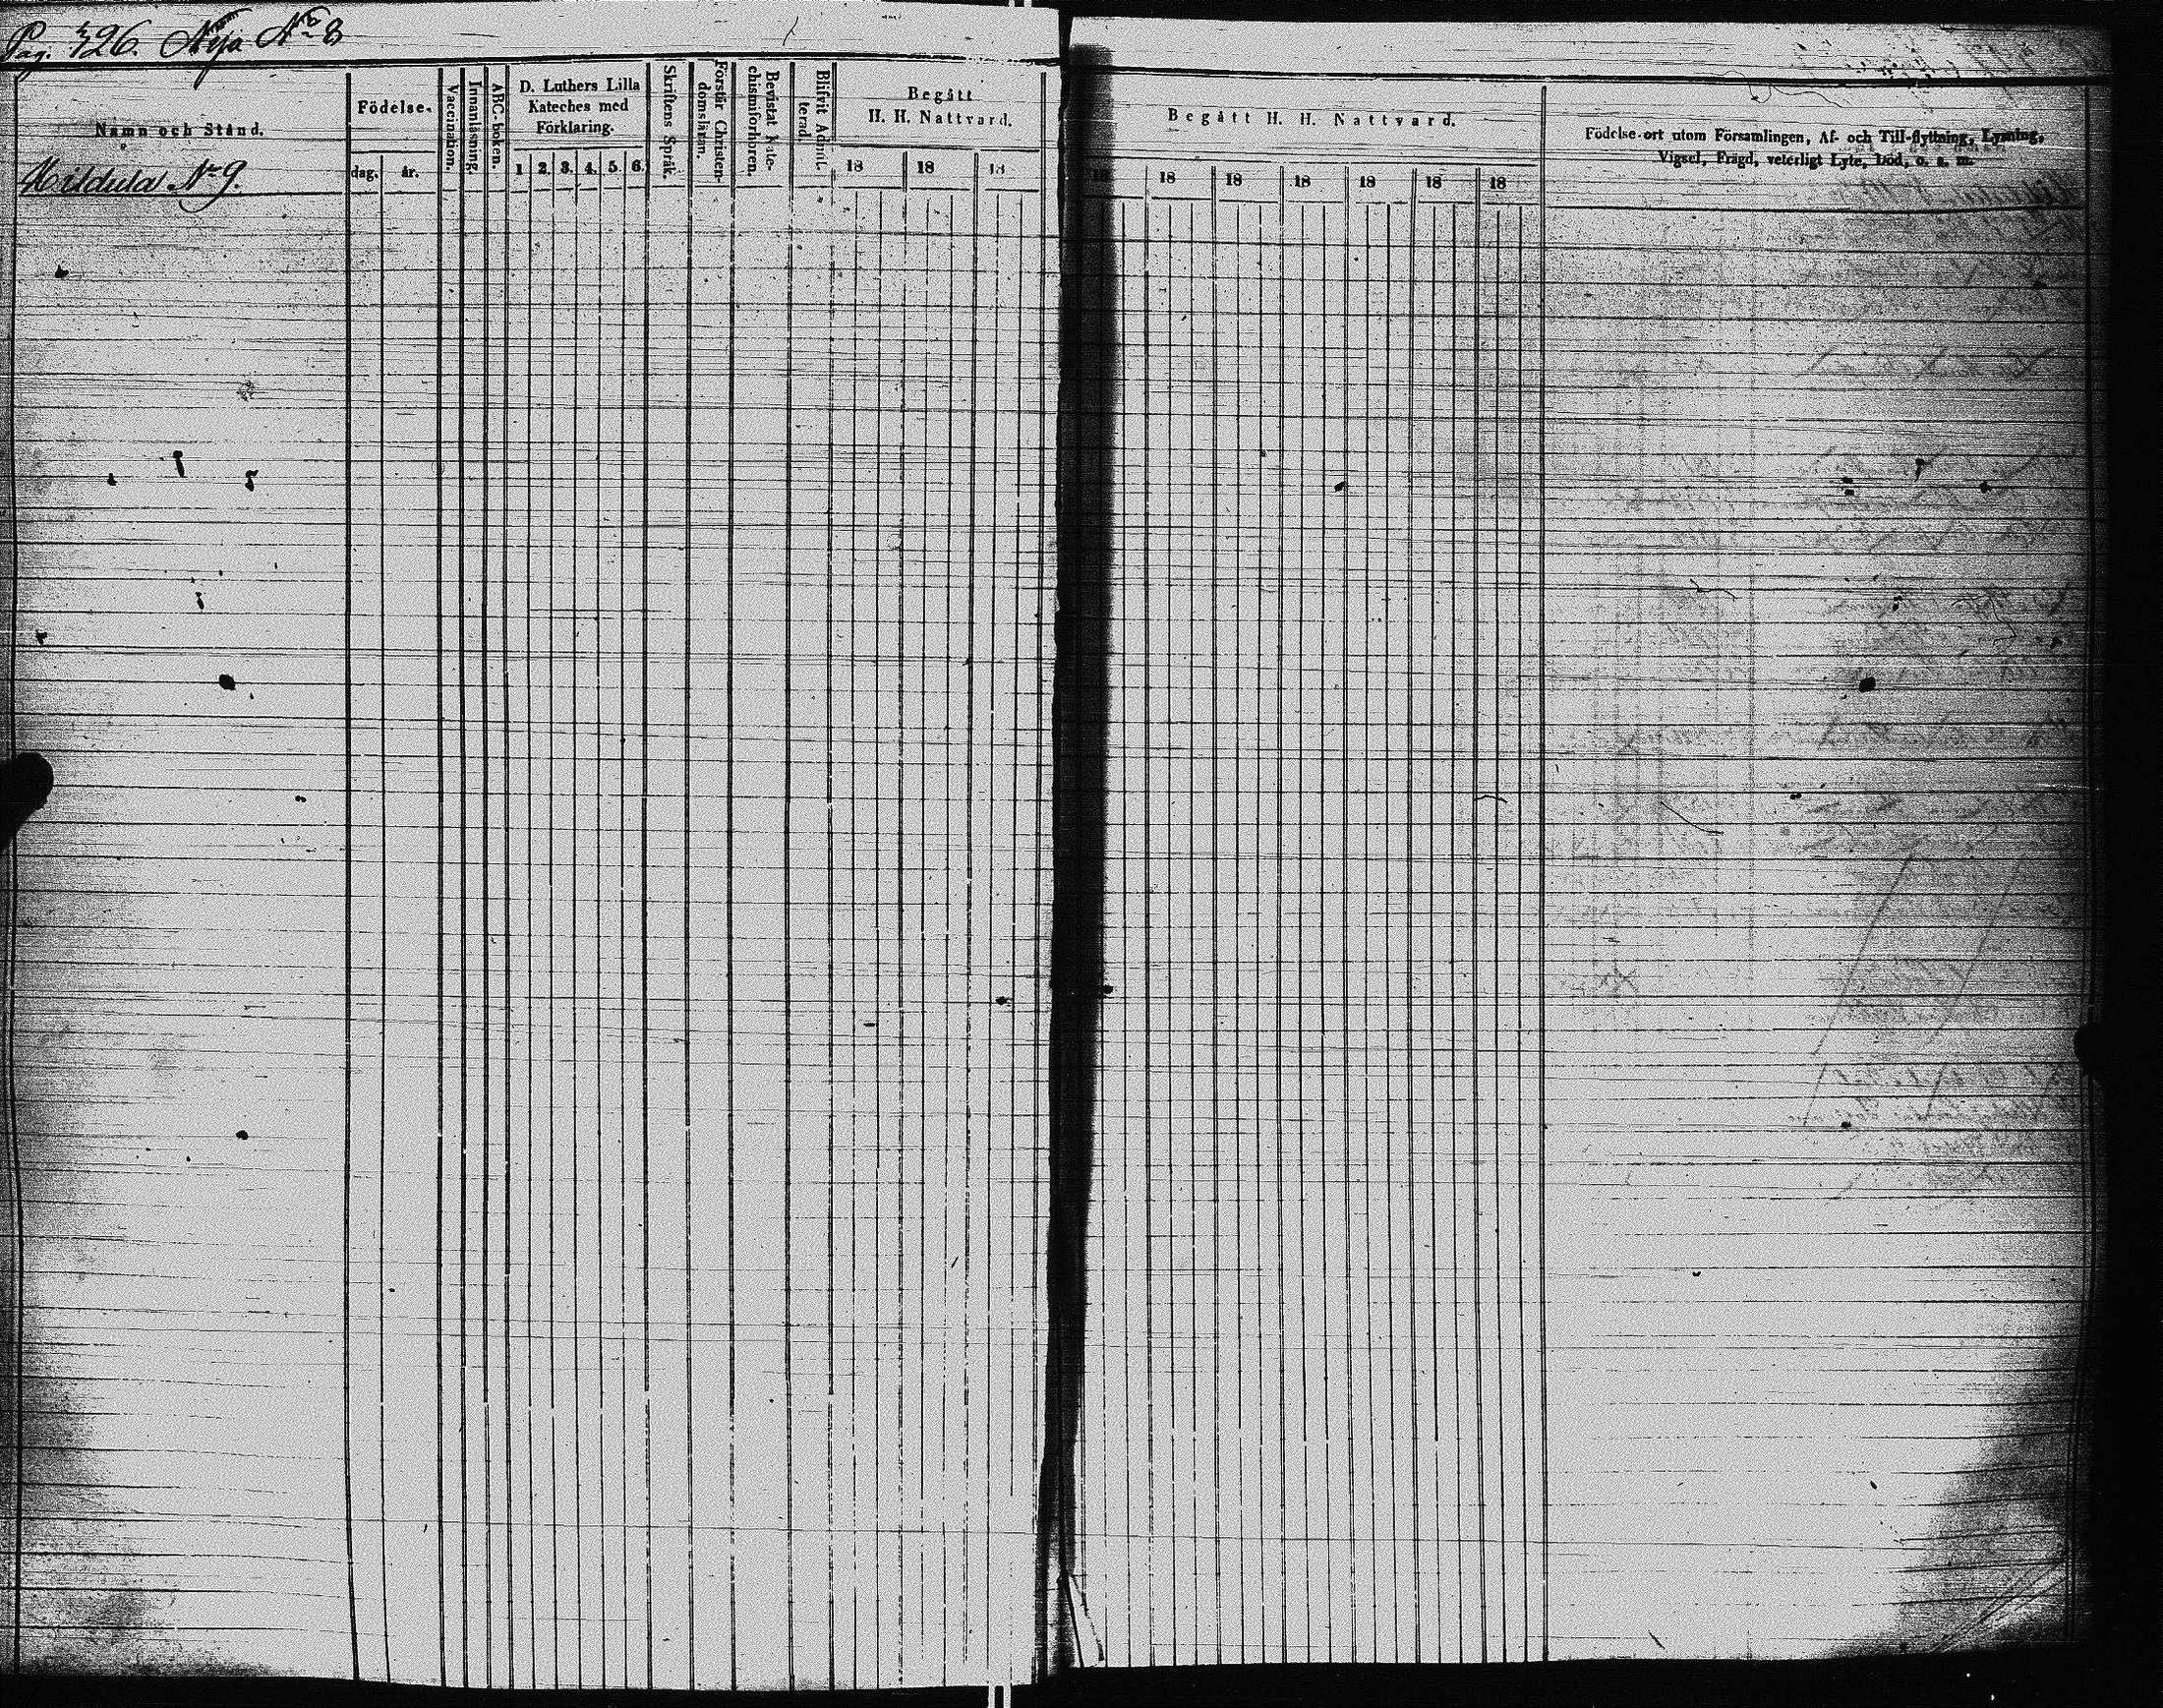 Pag. 326. Nyå No 8
Namn och Stånd.
Födelse-
dag. år.
Vaccination.
Innanläsning.
ABC-boken.
D. Luthers Lilla
Kateches med
Förklaring.
1 2. 3. 4. 5. 6.
Skriftens Språk.
Förstår Christen-
domsläran.
Bevistat Kate-
chismiförhören.
Blifvit Admit-
terad.
Begått
H. H. Nattvard.
18 18 18
Begått H. H. Nattvard.
18 18 18 18 18 18 18
Födelse-ort utom Församlingen, Af- och Till-flyttning, Lysning,
Vigsel, Frägd, veterligt Lyte, Död, o. s. m.
Hildula No 9.